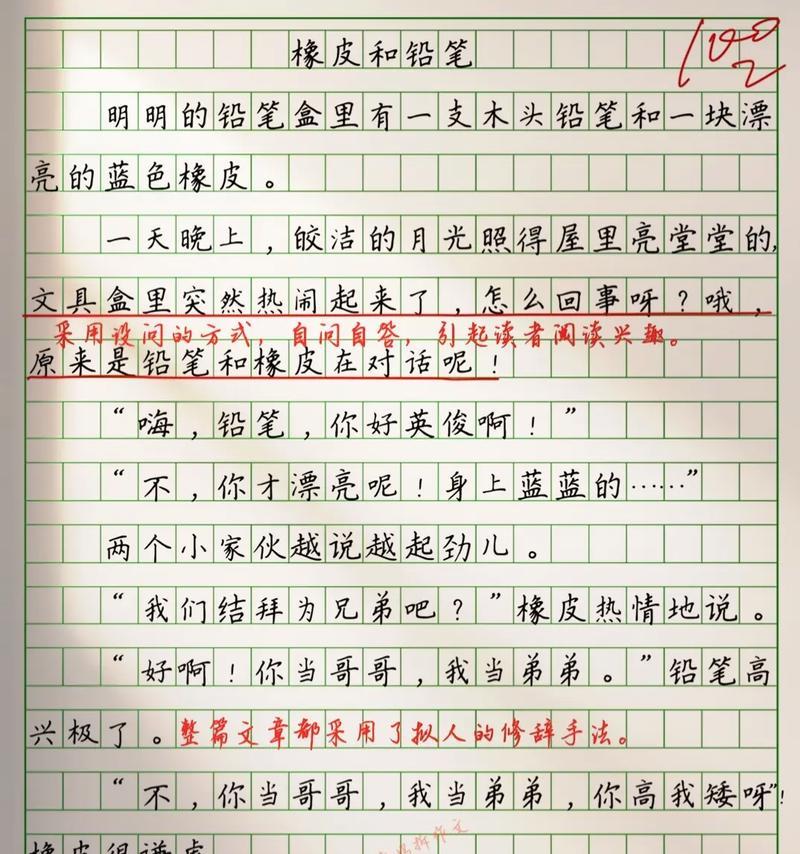 橡皮和铅笔
100
明明的铅笔盒里有一支木头铅笔和一块漂
亮的蓝色橡皮。
一天晚上，皎洁的月光照得屋里亮堂堂的，
文具盒里突然热闹起来了，怎么回事呀？哦，
采用设问的方式，自问自答，引起读者阅读兴趣。
原来是铅笔和橡皮在对话呢！
“嗨，铅笔，你好英俊啊！”
“不，你才漂亮呢！身上蓝蓝的……”
两个小家伙越说越起劲儿。
“我们结拜为兄弟吧？”橡皮热情地说。
“好啊！你当哥哥，我当弟弟。”铅笔高
兴极了。整篇文章都采用了拟人的修辞手法。
“不，你当哥哥，我当弟弟，你高我矮呀”！
橡皮很谦虚